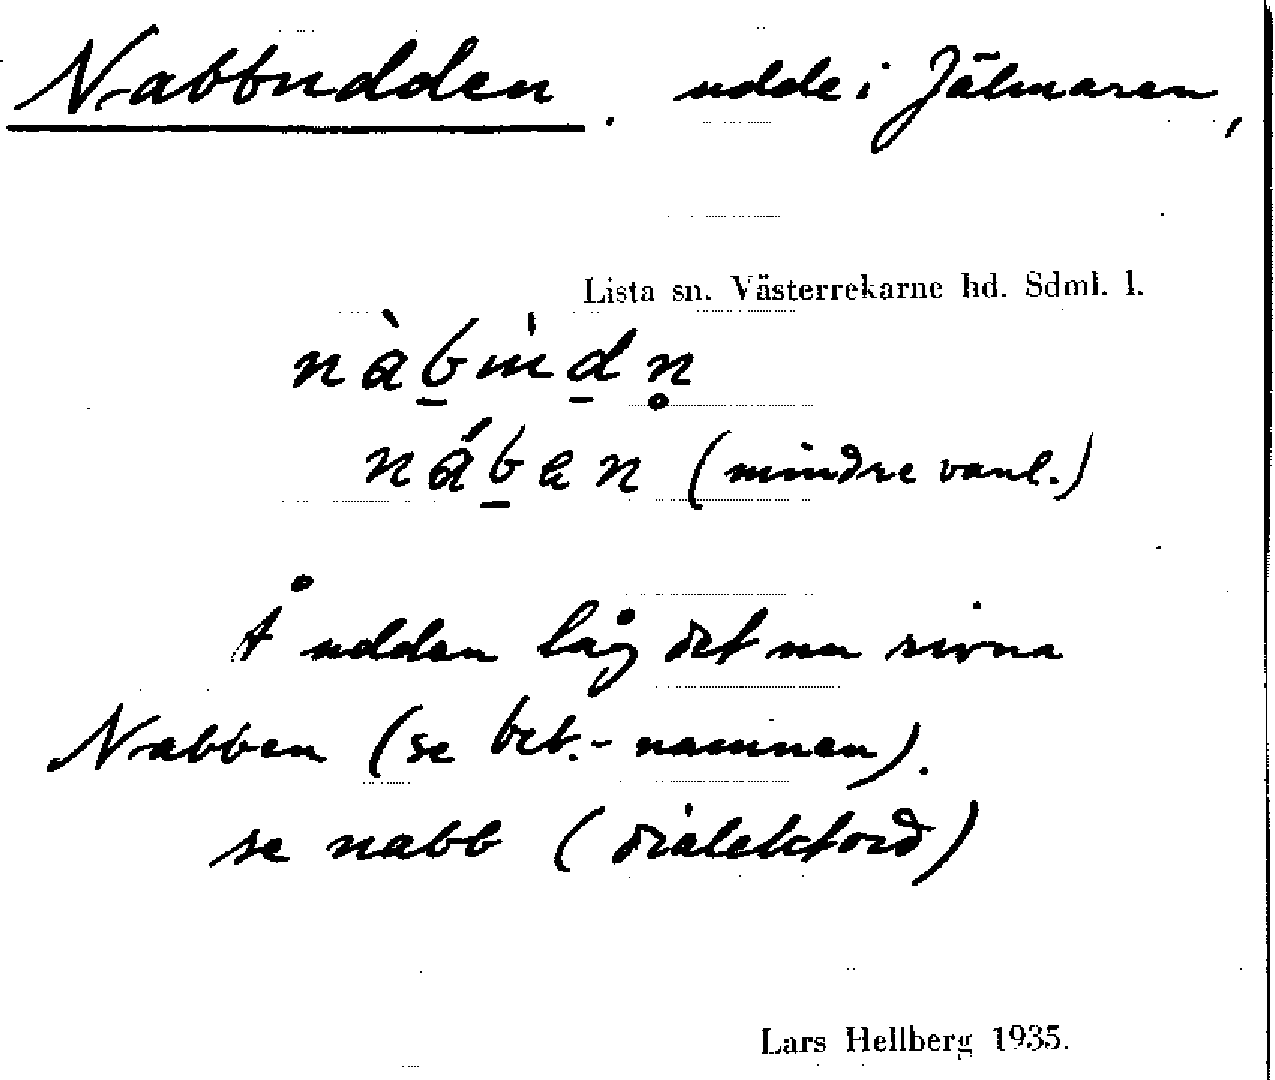 Nabbudden. udde i Jälmaren,
Lista sn. Västerrekarne hd. Sdml. l.
nàb̲ùd̲n̥
náb̲en (mindre vanl.)
Å udden låg det nu rivna
Nabben (se beb.-namnen).
se nabb (dialektord)
Lars Hellberg 1935.